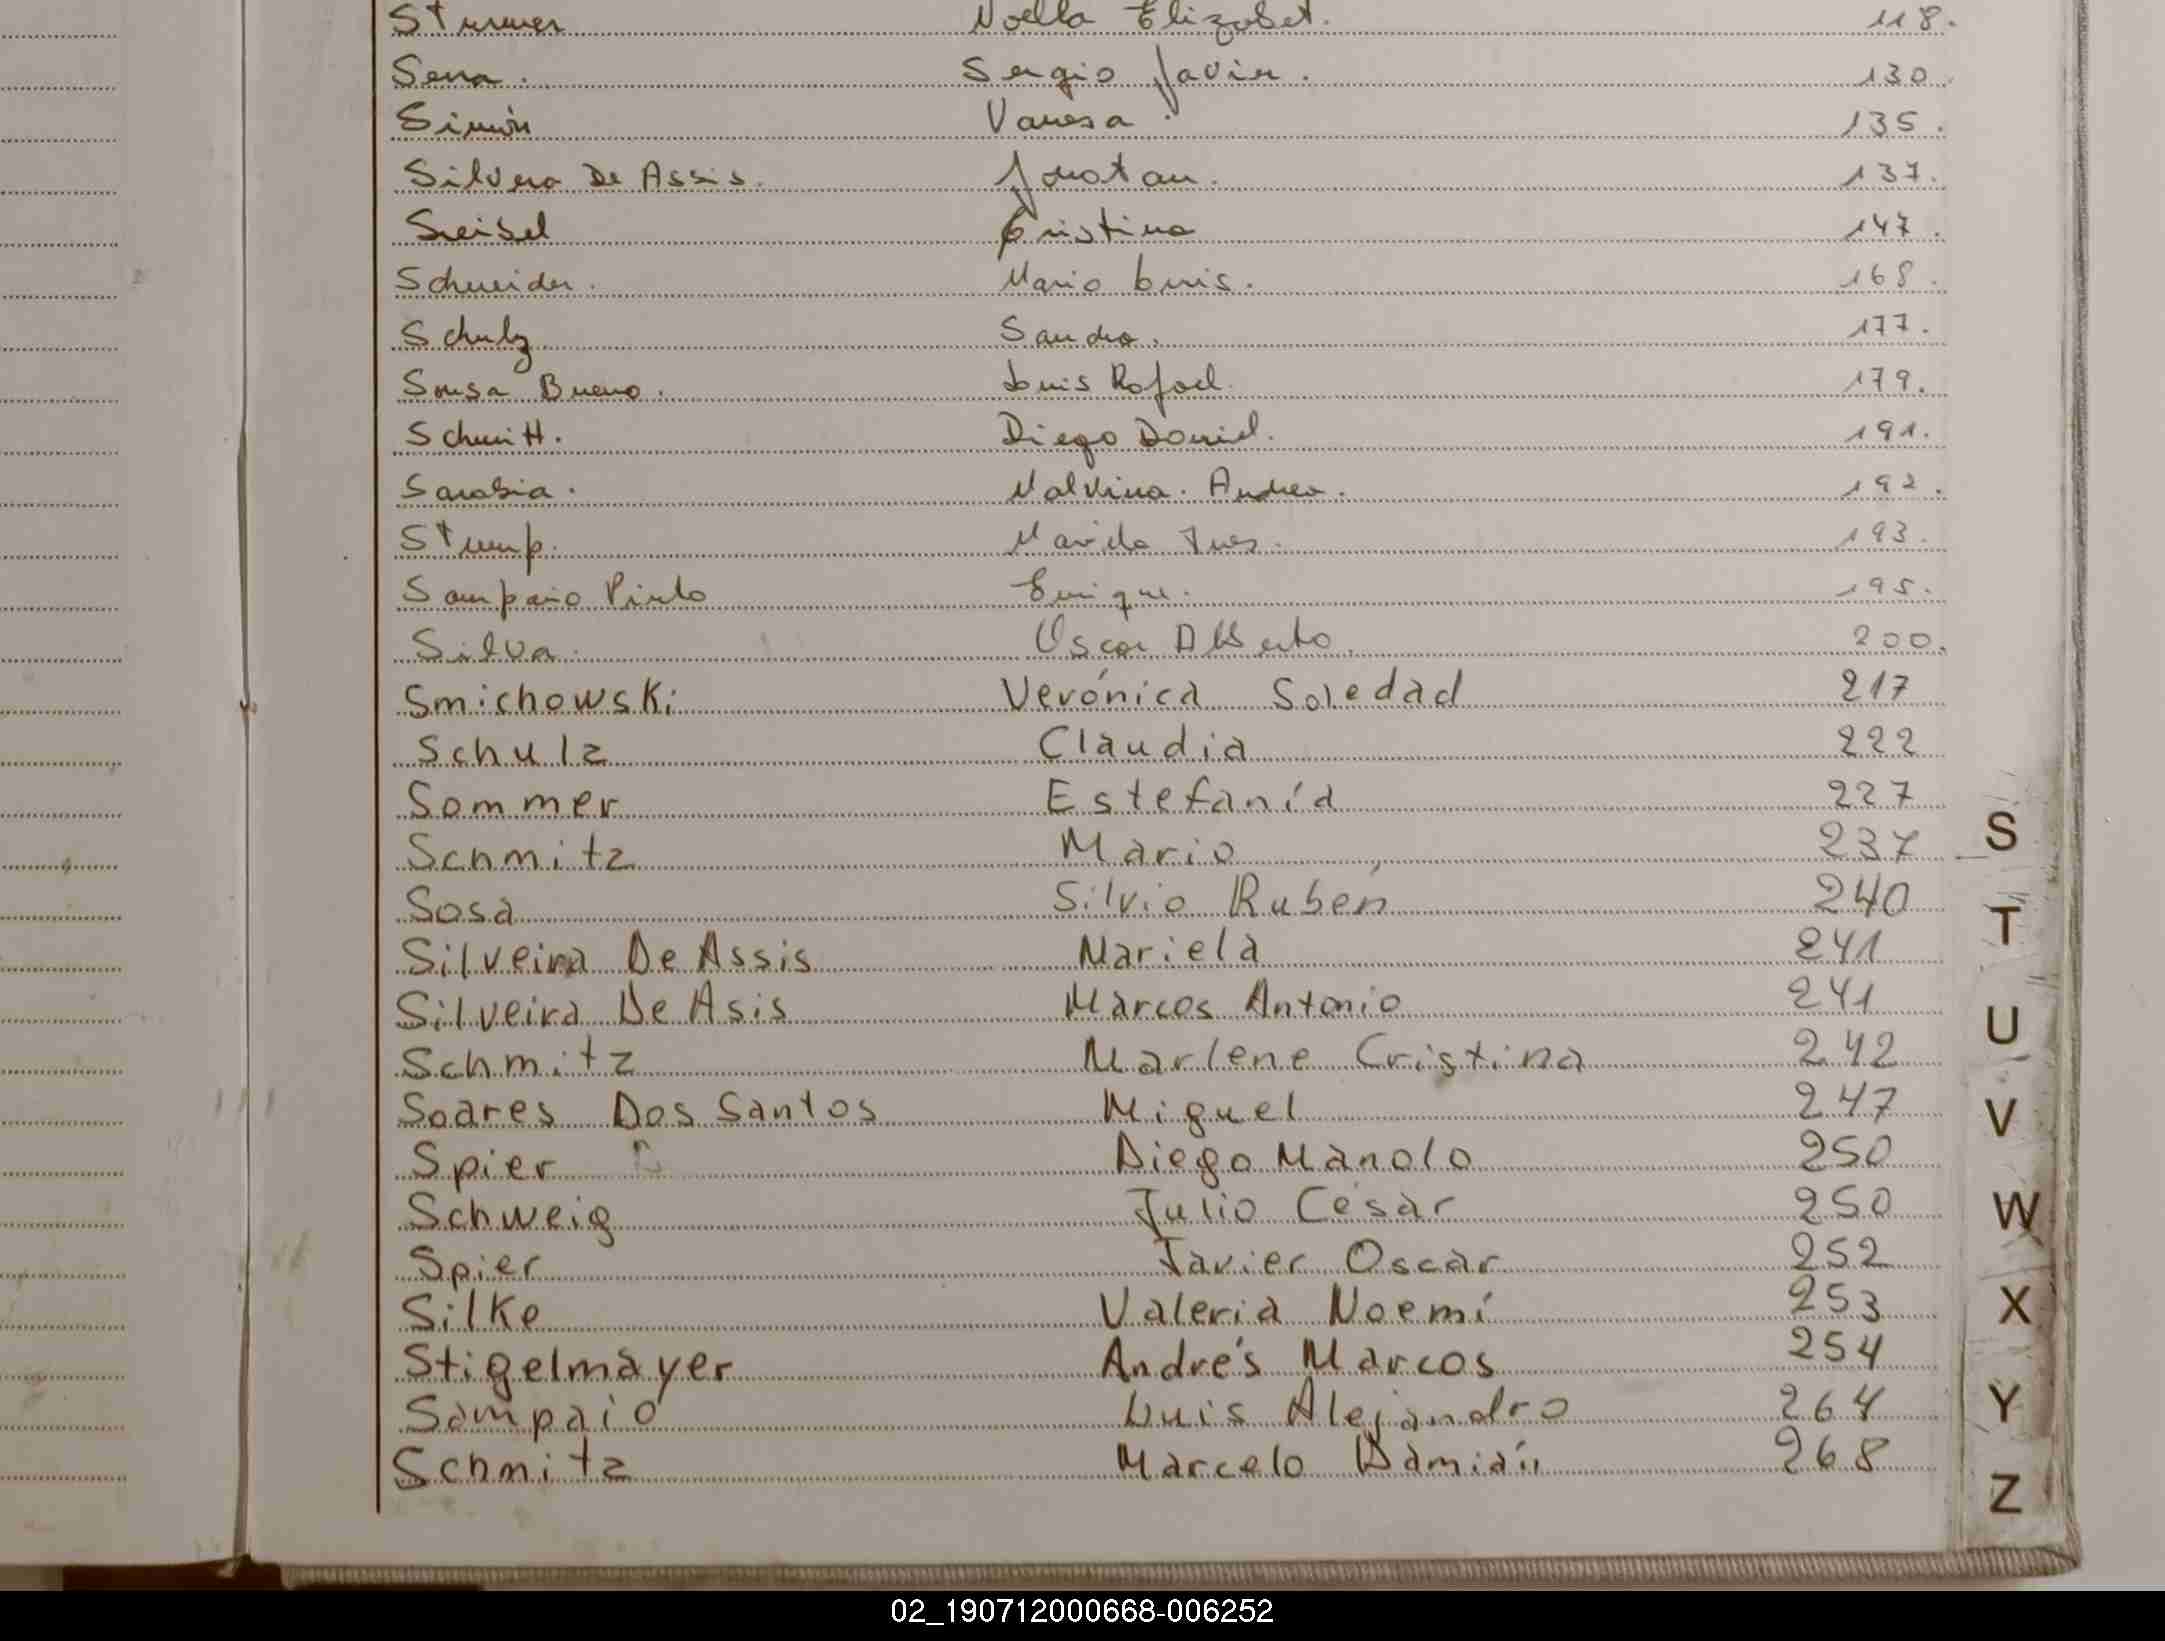 Sturmer Noelia Elizabet. 118.
Sena. Sergio Javier. 130
Simón Vanesa. 135.
Silvera De Assis. Jonatan. 137.
Seibel Cristina 147.
Schneider. Mario Luis. 168.
Schulz Sandra. 177.
Sousa Bueno. Luis Rafael. 179.
Schmitt. Diego Daniel. 191.
Sarabia. Malvina. Andrea. 192.
Stump. Mariela Ines. 193.
Sampaio Pinto Enrique. 195.
Silva. Oscar Alberto. 200.
Smichowski Verónica Soledad 217
Schulz Claudia 222
Sommer Estefanía 227
Schmitz Mario 237
Sosa Silvio Rubén 240
Silveira De Assis Mariela 241
Silveira De Asis Marcos Antonio 241
Schmitz Marlene Cristina 242
Soares Dos Santos Miguel 247
Spier Diego Manolo 250
Schweig Julio César 250
Spier Javier Oscar 252
Silke Valeria Noemí 253
Stigelmayer Andrés Marcos 254
Sampaio Luis Alejandro 264
Schmitz Marcelo Damián 268
S
T
U
V
W
X
Y
Z
02_190712000668-006252